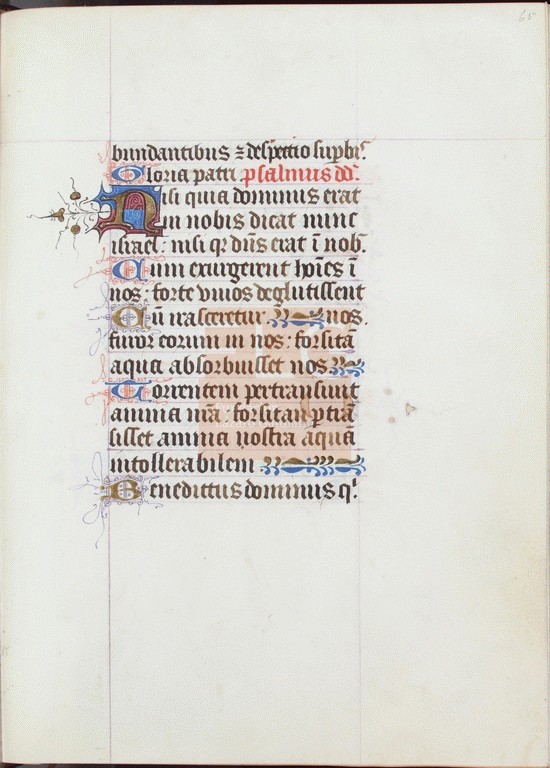 65
bundantibus ⁊ despectio supbis.
Gloria patri psalmus dd.
Nisi quia dominus erat
in nobis dicat nunc
israel: nisi q̄ dn̄s erat ī nob.
Cum exurgerent hoīes ī
nos: forte viuos deglutissent
Cū irasceretur nos.
furor eorum in nos: forsitā
aqua absorbuisset nos
Torrentem pertransiuit
anima nr̄a: forsitan ꝑtrā
sisset anima nostra aquā
intollerabilem
Benedictus dominus qꝰ